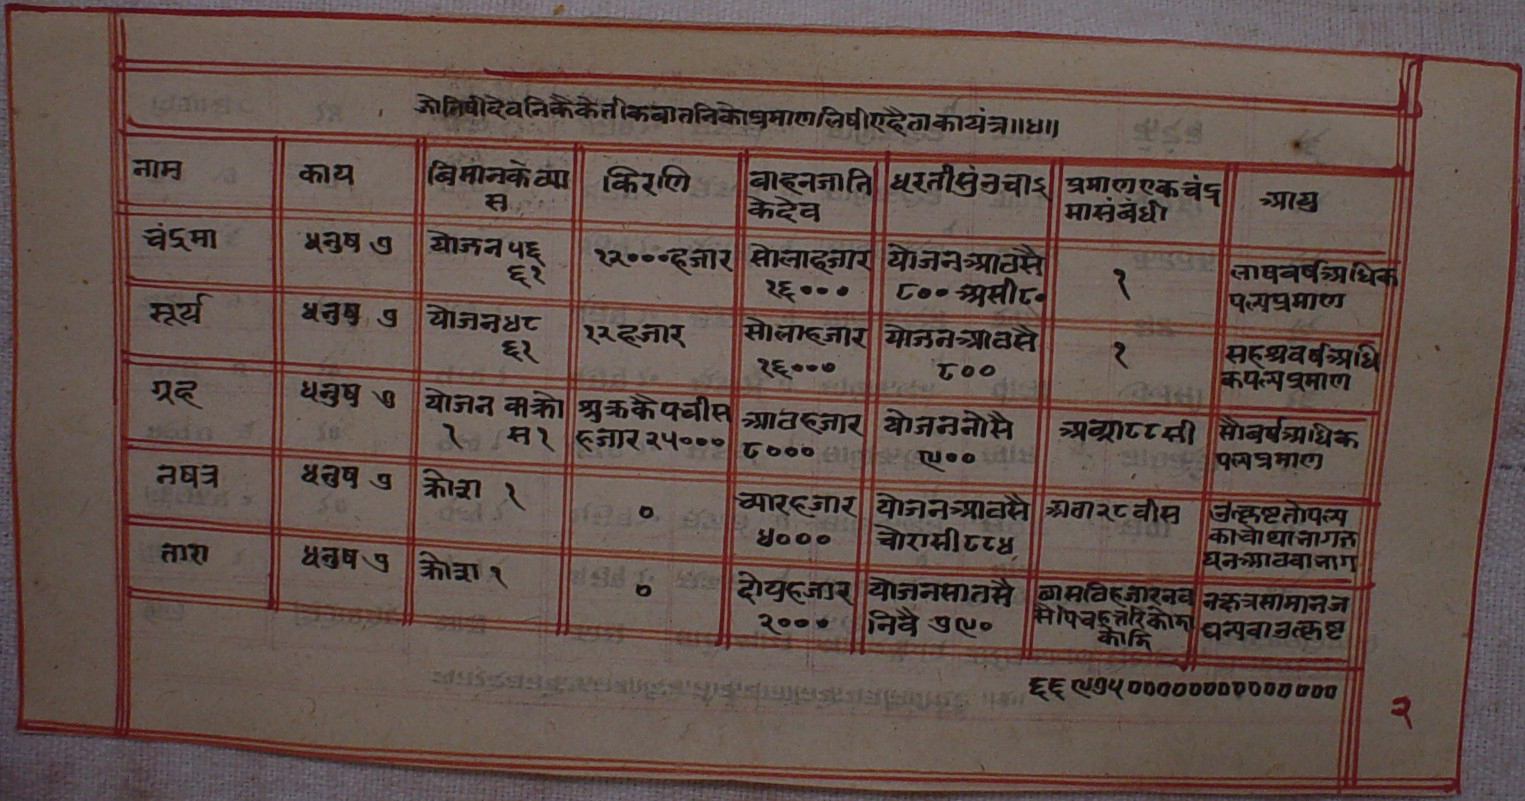 जोतिषीदेवनिकैकेतीकबातनिकोप्रमाणलिषीएहैताकायंत्र॥४॥
नाम काय बिमानकेव्या किरणि वाहनजाति धरतीसुंउचाइ प्रमाणएकचंद्र आयु
स केदेव मासंबंधी
चंद्रमा धनुष ७ योजन ५६ १२०००हजार सोलाहजार योजनआठसै १ लाषवर्षअधिक
६१ १६००० ८०० असी८० पल्यप्रमाण
सूर्य धनुष ७ योजन ४८ १२हजार सोलाहजार योजनआठसै १ सहश्रवर्षअधि
६१ १६००० ८०० कपल्यप्रमाण
ग्रह धनुष ७ योजन वाक्रो श्रुक्रकैपचीस आठहजार योजननोसै अठ्या८८सी सौवर्षअधिक
१ स१ हजार२५००० ८००० ९०० पल्यप्रमाण
नषत्र धनुष ७ क्रोश १ ० च्यारहजार योजनआठसै अठा२८वीस उत्कृष्टतोपल्य
४००० चोरासी८८४ काचोथाभागज
घनआठवाभाग
तारा धनुष ७ क्रोश १ ० दोयहजार योजनसातसै छासठिहजारनव नक्षत्रसामानज
२००० निवै ७९० सैपिचहत्तरिकोडा घन्यवाउत्कृष्ट
कोडि
६६९७५००००००००००००००
२